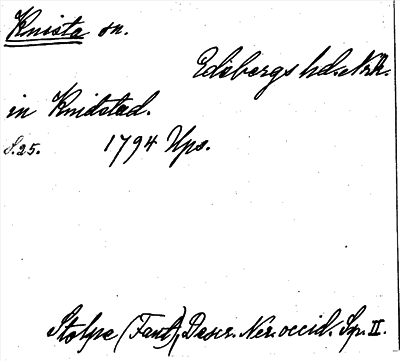 Knista sn.
Edsbergs hd. Nrk.
in Knidstad.
S.25. 1794 Ups.
Stolpe (Fant), Descr. Ner. occid. Sp. II.